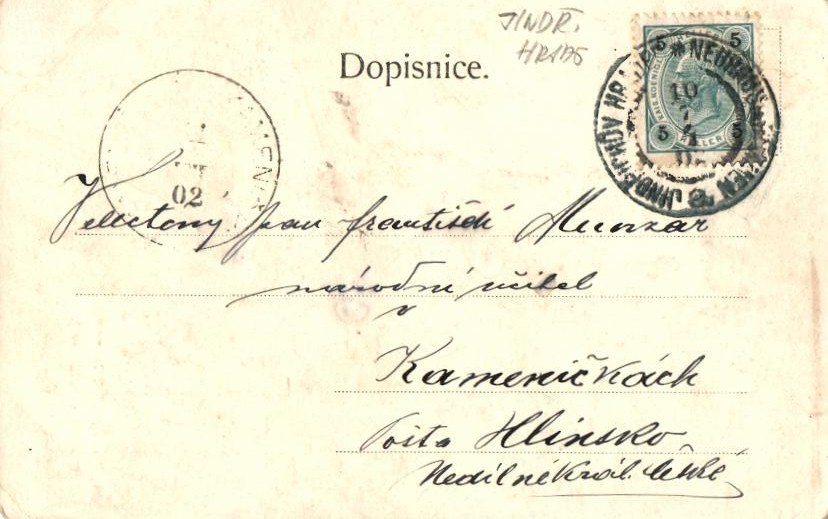 JINDŘ.
HRAD
Dopisnice.
5 5
5 5
HELLER
NEUHAUS
JINDŘICHŮV HRADEC
10
4
02
KAMENI
02
Velectěný pan František Munzar
národní učitel
v
Kameničkách
Pošta Hlinsko
Nedílné Král. České